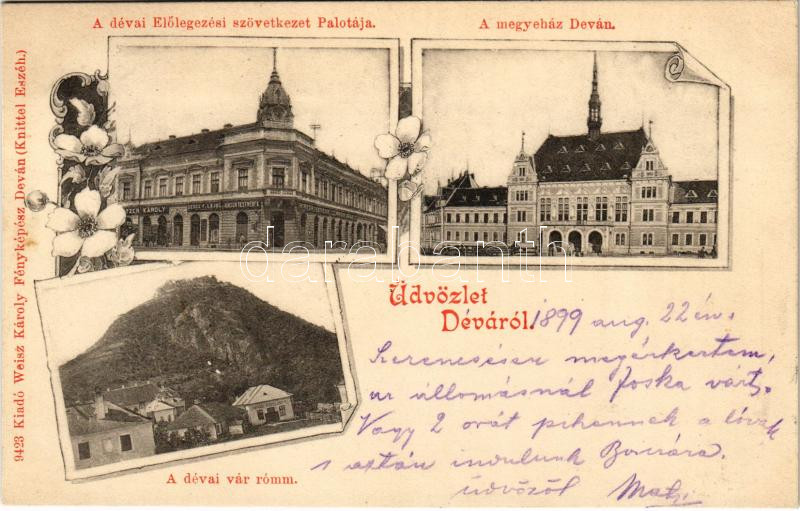 A dévai Előlegezési szövetkezet Palotája.
A megyeház Deván.
9423 Kiadó Weisz Károly Fényképész Deván (Knittel Eszéh.)
KÁROLY
darabanth.com
Üdvözlet
Déváról.
1899 aug. 22 én.
Szerencsésen megérkeztem,
az állomásnál Joska várt,
Vagy 2 orát pihennek a lovak
s aztán indulunk Boczára.
üdvözöl
A dévai vár rómm.